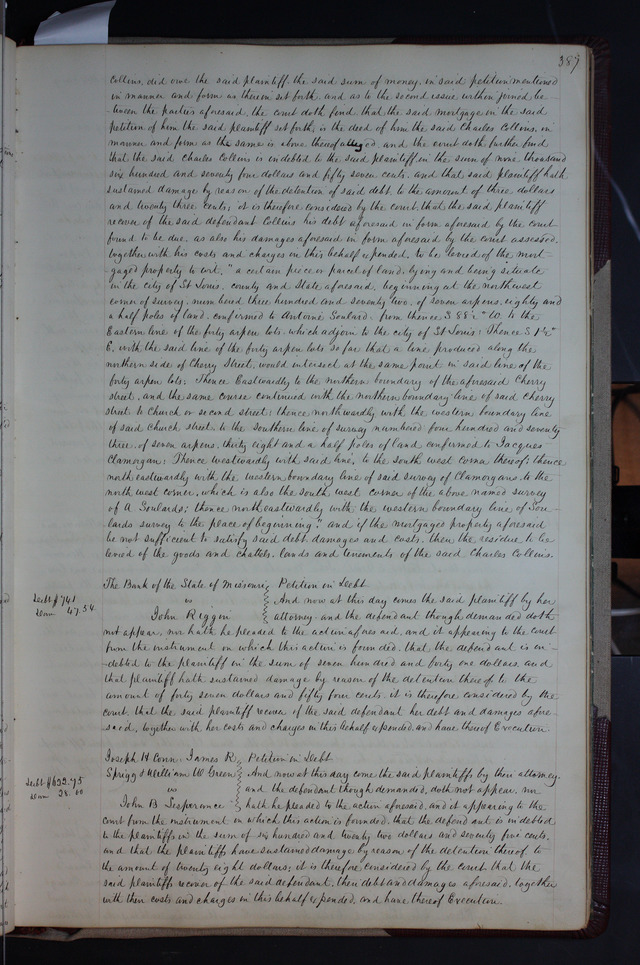 389
Collins, did owe the said plaintiff, the said sum of money, in said petition mentioned
in manner and form as therein set forth, and as to the second issue within joined be-
tween the parties aforesaid, the court doth find that the said mortgage in the said
petition of him the said plaintiff set forth, is the deed of him the said Charles Collins, in
manner and form as the same is above thereof alleged, and the court doth further find
that the said Charles Collins is indebted to the said plaintiff in the sum of nine thousand
six hundred and seventy four dollars and fifty seven cents, and that said plaintiff hath
sustained damage by reason of the detention of said debt, to the amount of three dollars
and twenty three cents; it is therefore considered by the court, that the said plaintiff
recover of the said defendant Collins his debt aforesaid in form aforesaid by the court
found to be due, as also his damages aforesaid in form aforesaid by the court assessed,
together with his costs and charges in this behalf expended, to be levied of the mort-
gaged property to wit, "a certain piece or parcel of land, lying and being situate
in the city of St Louis, county and State aforesaid, beginning at the northwest
corner of survey, numbered three hundred and seventy two, of seven arpens, eighty and
a half poles of land, confirmed to Antoine Soulard, from thence S 88½° W. to the
Eastern line of the forty arpen lots, which adjoin to the city of St Louis; Thence S 1½°
E. with the said line of the forty arpen lots so far that a line produced along the
northern side of Cherry Street, would intersect at the same point in said line of the
forty arpen lots; Thence Eastwardly to the northern boundary of the aforesaid Cherry
street, and the same course continued with the northern boundary line of said Cherry
street to Church or second street; thence northwardly with the western boundary line
of said church street, to the southern line of survey numbered four hundred and seventy
three, of seven arpens, thirty eight and a half poles of land confirmed to Jacques
Clamorgan; Thence westwardly with said line, to the south west corner thereof; thence
north eastwardly with the western boundary line of said survey of Clamorgans to the
north west corner, which is also the south west corner of the above named survey
of A Soulards; thence north eastwardly with the western boundary line of Sou-
lards survey to the place of beginning"; and if the mortgaged property aforesaid
be not sufficient to satisfy said debt, damages and costs, then the residue to be
levied of the goods and chattels, lands and tenements of the said Charles Collins.
The Bank of the State of Missouri, Petition in Debt
Debt $741 vs And now at this day comes the said plaintiff by her
Dam 47.54 John Riggin attorney, and the defendant though demanded doth
not appear, nor hath he pleaded to the action aforesaid, and it appearing to the court
from the instrument on which this action is founded, that the defendant is in-
debted to the plaintiff in the sum of seven hundred and forty one dollars, and
that plaintiff hath sustained damage by reason of the detention thereof to the
amount of forty seven dollars and fifty four cents, it is therefore considered by the
court, that the said plaintiff recover of the said defendant her debt and damages afore-
said, together with her costs and charges in this behalf expended, and have thereof Execution.
Joseph H Conn, James R, Petition in Debt
Debt $622.75 Sprigg & William W Green And now at this day come the said plaintiffs by their attorney,
Dam 28.00 vs and the defendant though demanded, doth not appear, nor
John B Lesperance hath he pleaded to the action aforesaid, and it appearing to the
court from the instrument in which this action is founded, that the defendant is indebted
to the plaintiffs in the sum of six hundred and twenty two dollars and seventy five cents,
and that the plaintiffs have sustained damage by reason of the detention thereof to
the amount of twenty eight dollars; it is therefore considered by the court that the
said plaintiffs recover of the said defendant, their debt and damages aforesaid, together
with their costs and charges in this behalf expended, and have thereof Execution.